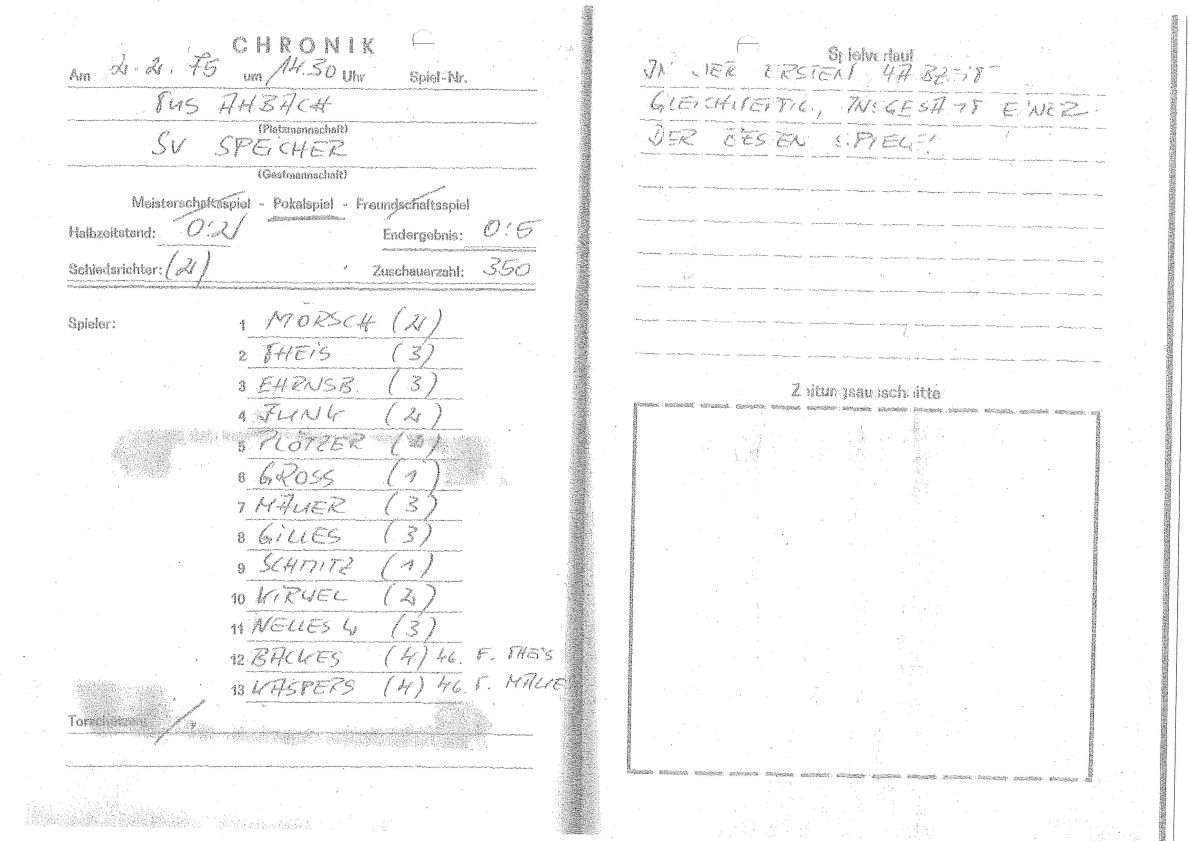 CHRONIK
Am 2.2.75 um 14.30 Uhr Spiel-Nr.
TUS AHBACH
(Platzmannschaft)
SV SPEICHER
(Gastmannschaft)
Meisterschaftsspiel - Pokalspiel - Freundschaftsspiel
Halbzeitstand: 0:2 Endergebnis: 0:5
Schiedsrichter: (2) Zuschauerzahl: 350
Spieler:
1 MORSCH (2)
2 THEIS (3)
3 EHRNSB. (3)
4 JUNK (2)
5 PLÖTZER
6 GROSS (1)
7 MAUER (3)
8 GILLES (3)
9 SCHMITZ (1)
10 KIRWEL (2)
11 NELLES (3)
12 BACKES (4) 46. F. THEIS
13 KASPERS (4) 46. F. MAUE
Torschützen:
Spielverlauf
IN DER ERSTEN HABZEIT
GLEICHWERTIG, INSGESAMT EINER
DER BESTEN SPIELE!
Zeitungsausschnitte